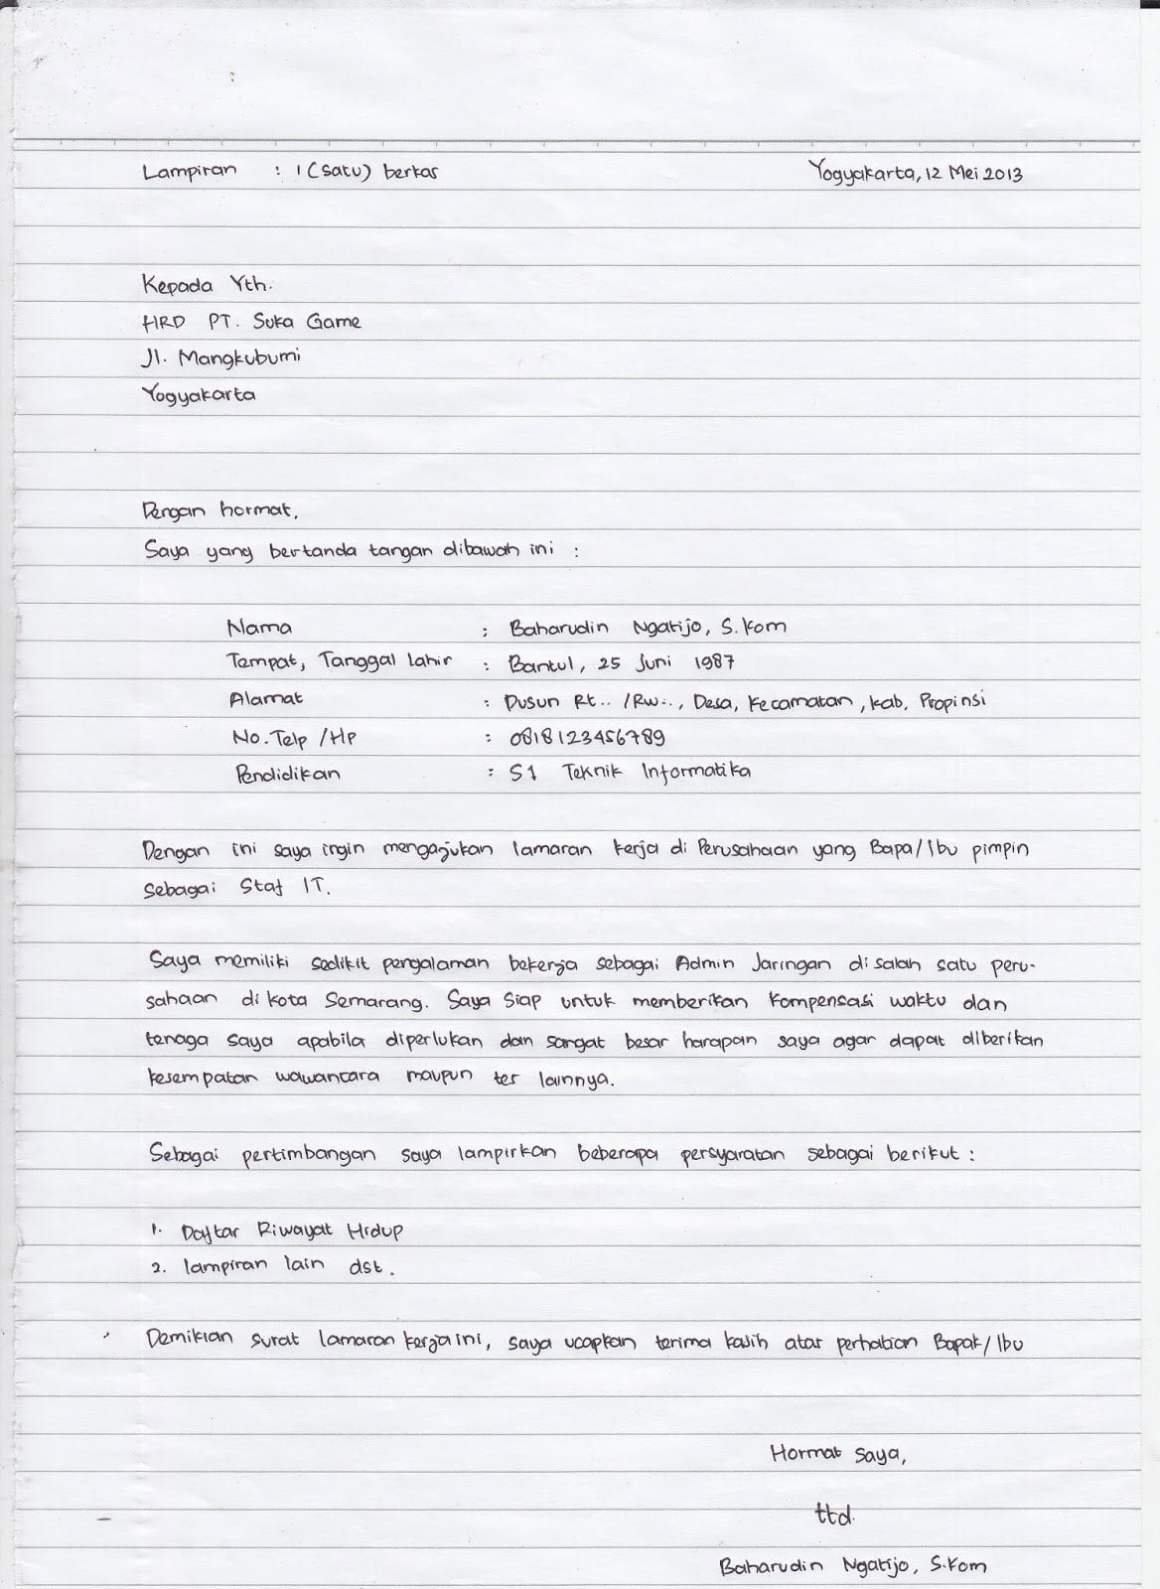 Lampiran : 1 (satu) berkas Yogyakarta, 12 Mei 2013
Kepada Yth.
HRD PT. Suka Game
Jl. Mangkubumi
Yogyakarta
Dengan hormat,
Saya yang bertanda tangan dibawah ini :
Nama : Baharudin Ngatijo, S.Kom
Tempat, Tanggal lahir : Bantul, 25 Juni 1987
Alamat : Dusun Rt.. /Rw.., Desa, Kecamatan, kab, Propinsi
No. Telp /Hp : 0818123456789
Pendidikan : S1 Teknik Informatika
Dengan ini saya ingin mengajukan lamaran kerja di Perusahaan yang Bapa/Ibu pimpin
sebagai Staf IT.
Saya memiliki sedikit pengalaman bekerja sebagai Admin Jaringan di salah satu peru-
sahaan di kota Semarang. Saya siap untuk memberikan kompensasi waktu dan
tenaga saya apabila diperlukan dan sangat besar harapan saya agar dapat diberikan
kesempatan wawancara maupun tes lainnya.
Sebagai pertimbangan saya lampirkan beberapa persyaratan sebagai berikut :
1. Daftar Riwayat Hidup
2. lampiran lain dst.
Demikian surat lamaran kerja ini, saya ucapkan terima kasih atas perhatian Bapak/Ibu
Hormat saya,
ttd.
Baharudin Ngatijo, S.Kom